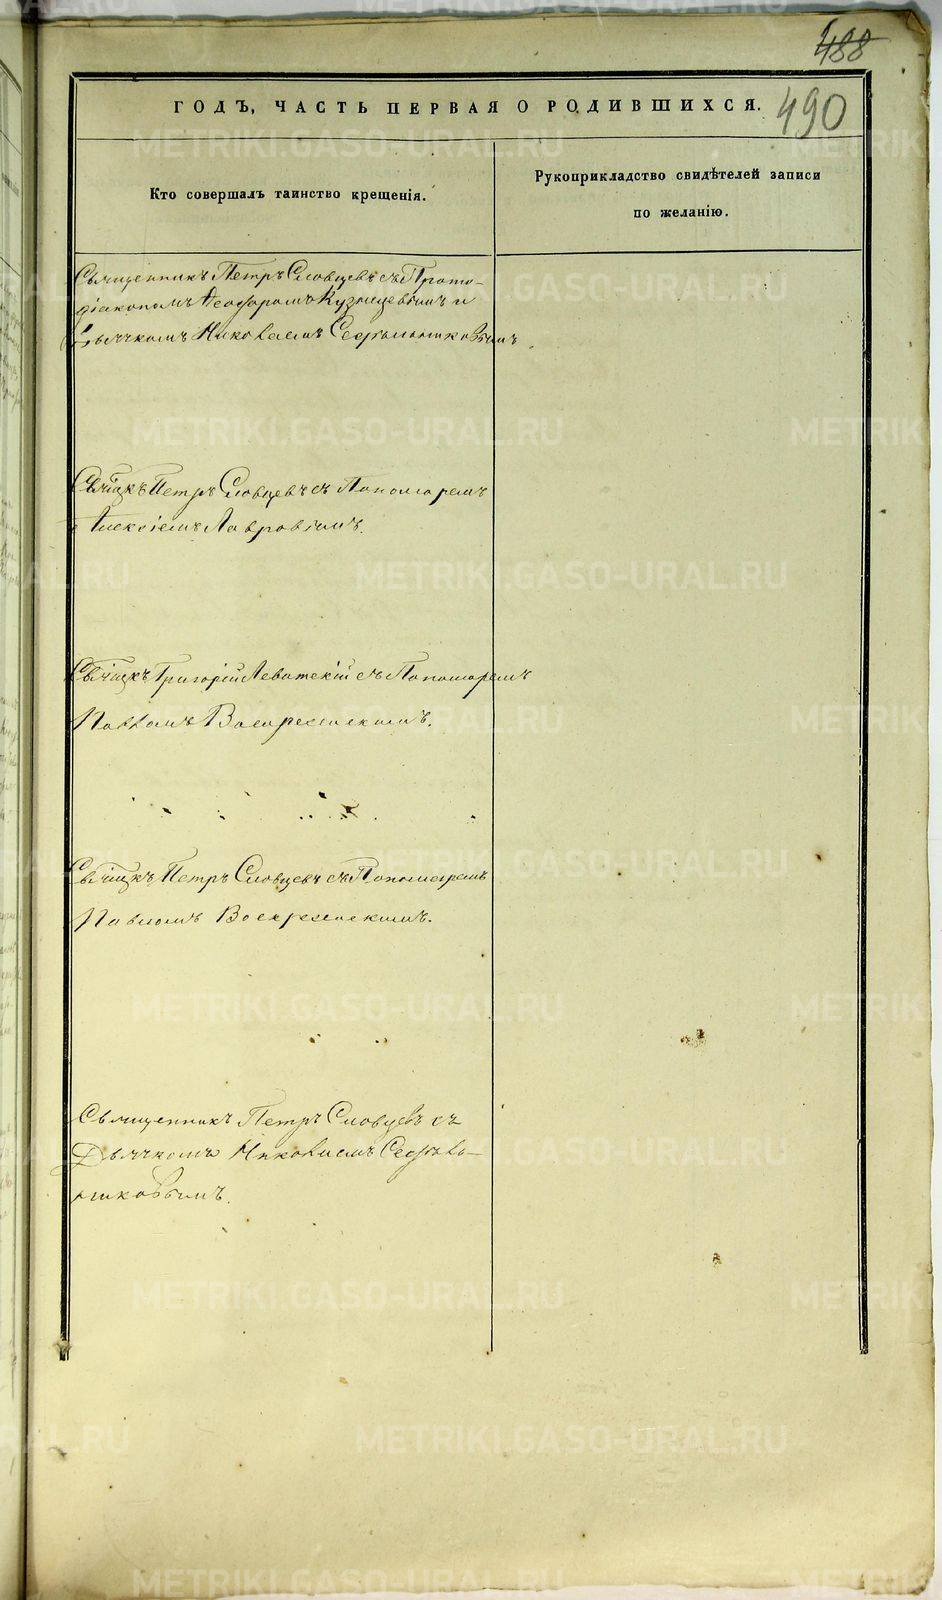 488
490
ГОДЪ, ЧАСТЬ ПЕРВАЯ О РОДИВШИХСЯ.
Кто совершалъ таинство крещенія.
Рукоприкладство свидѣтелей записи
по желанію.
Священникъ Петръ Словцевъ съ Прото-
діакономъ Ѳеодоромъ Кузнецовымъ и
Дьячкомъ Николаемъ
Свѧщкъ Петръ Словцевъ съ Пономаремъ
Алексіемъ Лавровымъ.
Свѧщкъ Григорій Левитскій съ Пономаремъ
Павломъ Воскресенскимъ.
Свѧщкъ Петръ Словцевъ съ Пономаремъ
Павломъ Воскресенскимъ.
Священникъ Петръ Словцевъ съ
Дьячкомъ Николаемъ
METRIKI.GASO-URAL.RU